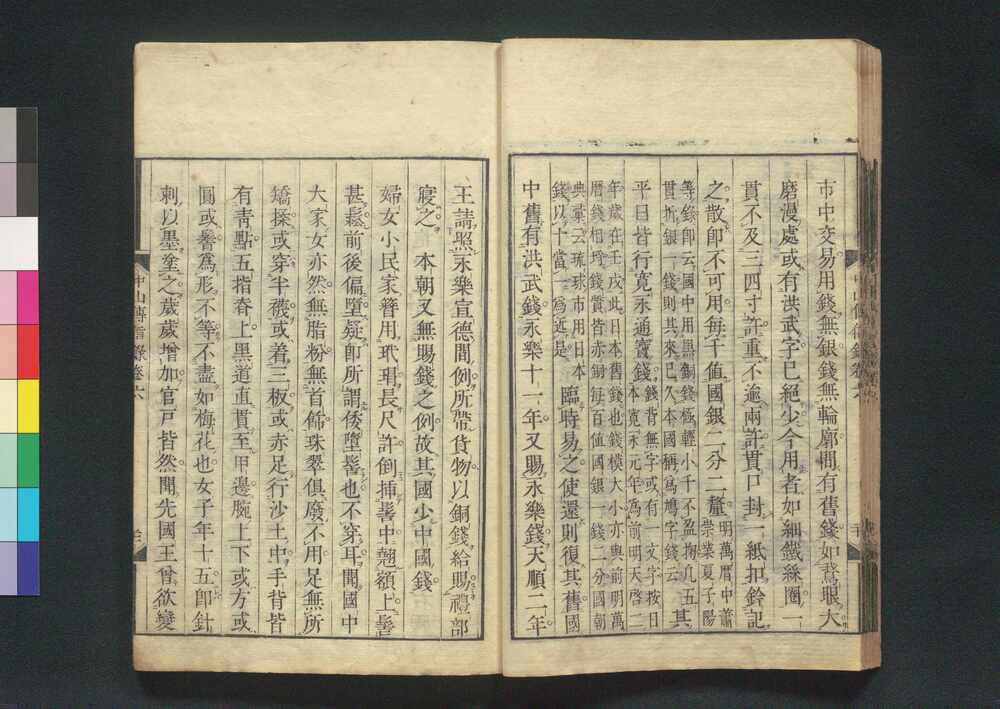 市中交易用錢無銀錢無輪廓間有舊錢如鵞眼大
磨漫處或有洪武字已絕少今用者如細鐵絲圈一
貫不及三四寸許重不逾兩許貫口封一紙扣鈐記
之散卽不可用每千值國銀二分二釐
明萬曆中蕭
崇業夏子陽
等錄卽云國中用黑銅錢極輕小千不盈掬凡五
貫折銀一錢則其來已久本國稱爲鳩字錢云
其
平日皆行寬永通寶錢
錢背無字或有一文字按日
本寬永元年爲前明天啓二
年歲在壬戌此日本舊錢也錢模大小亦與前明萬
曆錢相埒錢質皆赤銅每百值國銀一錢二分國朝
典彙云琉球市用日本
錢以十當一爲近是
臨時易之使還則復其舊國
中舊有洪武錢永樂十一年又賜永樂錢天順二年
中山傳信錄卷六
王請照永樂宣德間例所帶貨物以銅錢給賜禮部
寢之 本朝又無賜錢之例故其國少中國錢
婦女小民家簪用玳瑁長尺許倒挿髻中翹額上髻
甚鬆前後偏墮疑卽所謂倭墮髻也不穿耳聞國中
大家女亦然無脂粉無首餙珠翠俱廢不用足無所
矯揉或穿半襪或着三板或赤足行沙土中手背皆
有靑點五指脊上黑道直貫至甲邊腕上下或方或
圓或髻爲形不等不盡如梅花也女子年十五卽針
刺以墨塗之歲歲增加官戶皆然聞先國王曾欲變
中山傳信錄卷六